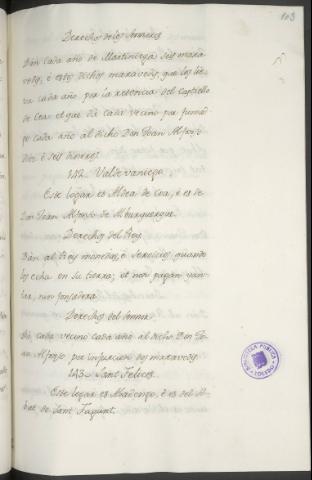 103
Derechos de los Señores
Dan cada año de Martiniega seis mara-
vedis, é estos dichos maravedis, que los lie-
va cada año por la retenencia del Castiello
de Cea: et que dá cada vecino por fumad-
go cada año al dicho Don Joan Alfonso
dos é seis dineros.
142. Valdevaniego.
Este logar es Aldea de Cea, é es de
Don Joan Alfonso de Alburquerque.
Derechos del Rey.
Dán al Rey monedas, é servicios, quando
los echa en su tierra; et non pagan yan-
tar, nin fonsadera.
Derechos del Señor.
Dá cada vecino cada año al dicho Don Jo-
an Alfonso por infurcion dos maravedis.
143. Sant Felices.
Este logar es Abadengo, é es del Ab-
bat de Sant Fagunt.
BIBLIOTECA PUBLICA
TOLEDO